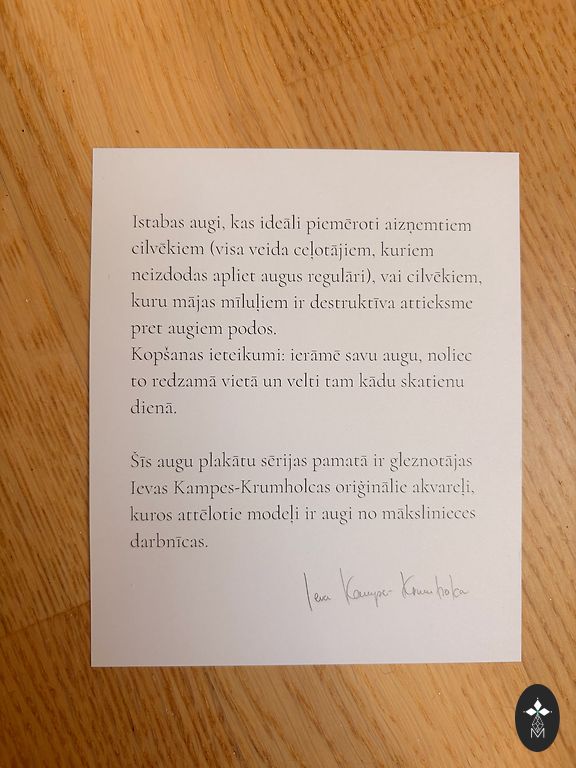 Istabas augi, kas ideāli piemēroti aizņemtiem
cilvēkiem (visa veida ceļotājiem, kuriem
neizdodas apliet augus regulāri), vai cilvēkiem,
kuru mājas mīluļiem ir destruktīva attieksme
pret augiem podos.
Kopšanas ieteikumi: ierāmē savu augu, noliec
to redzamā vietā un velti tam kādu skatienu
dienā.
Šīs augu plakātu sērijas pamatā ir gleznotājas
Ievas Kampes-Krumholcas oriģinālie akvareļi,
kuros attēlotie modeļi ir augi no mākslinieces
darbnīcas.
Ieva Kampe-Krumholca